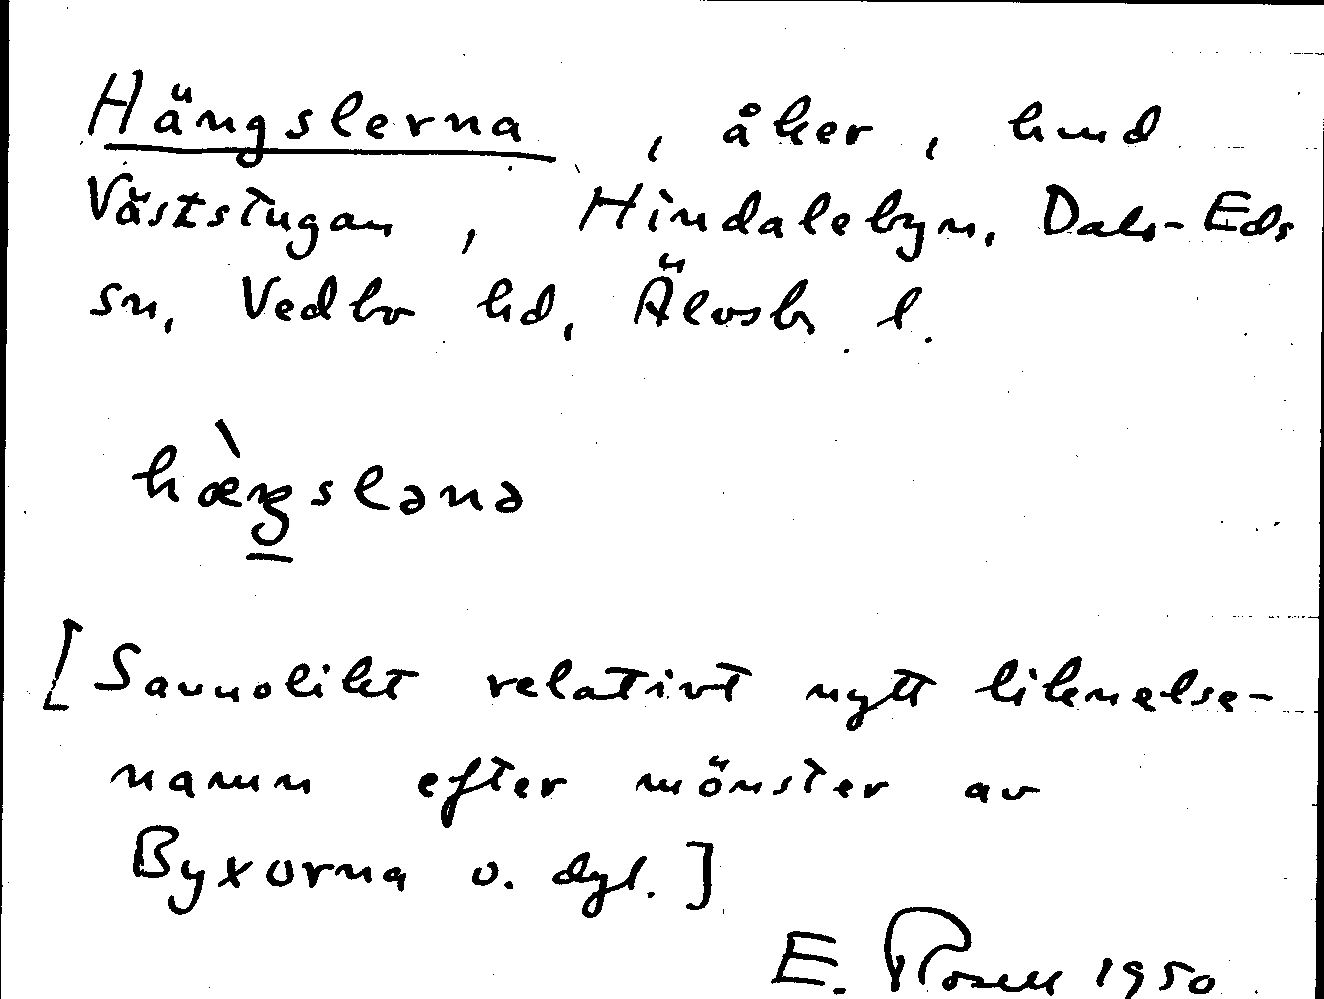 Hängslerna, åker, hmd
Väststugan, Hindalebyn, Dals-Eds
sn, Vedbo hd, Älvsb l.
hæ̀ŋslənə
[Sannolikt relativt nytt liknelse-
namn efter mönster av
Byxorna o. dyl.]
E. Rosell 1950